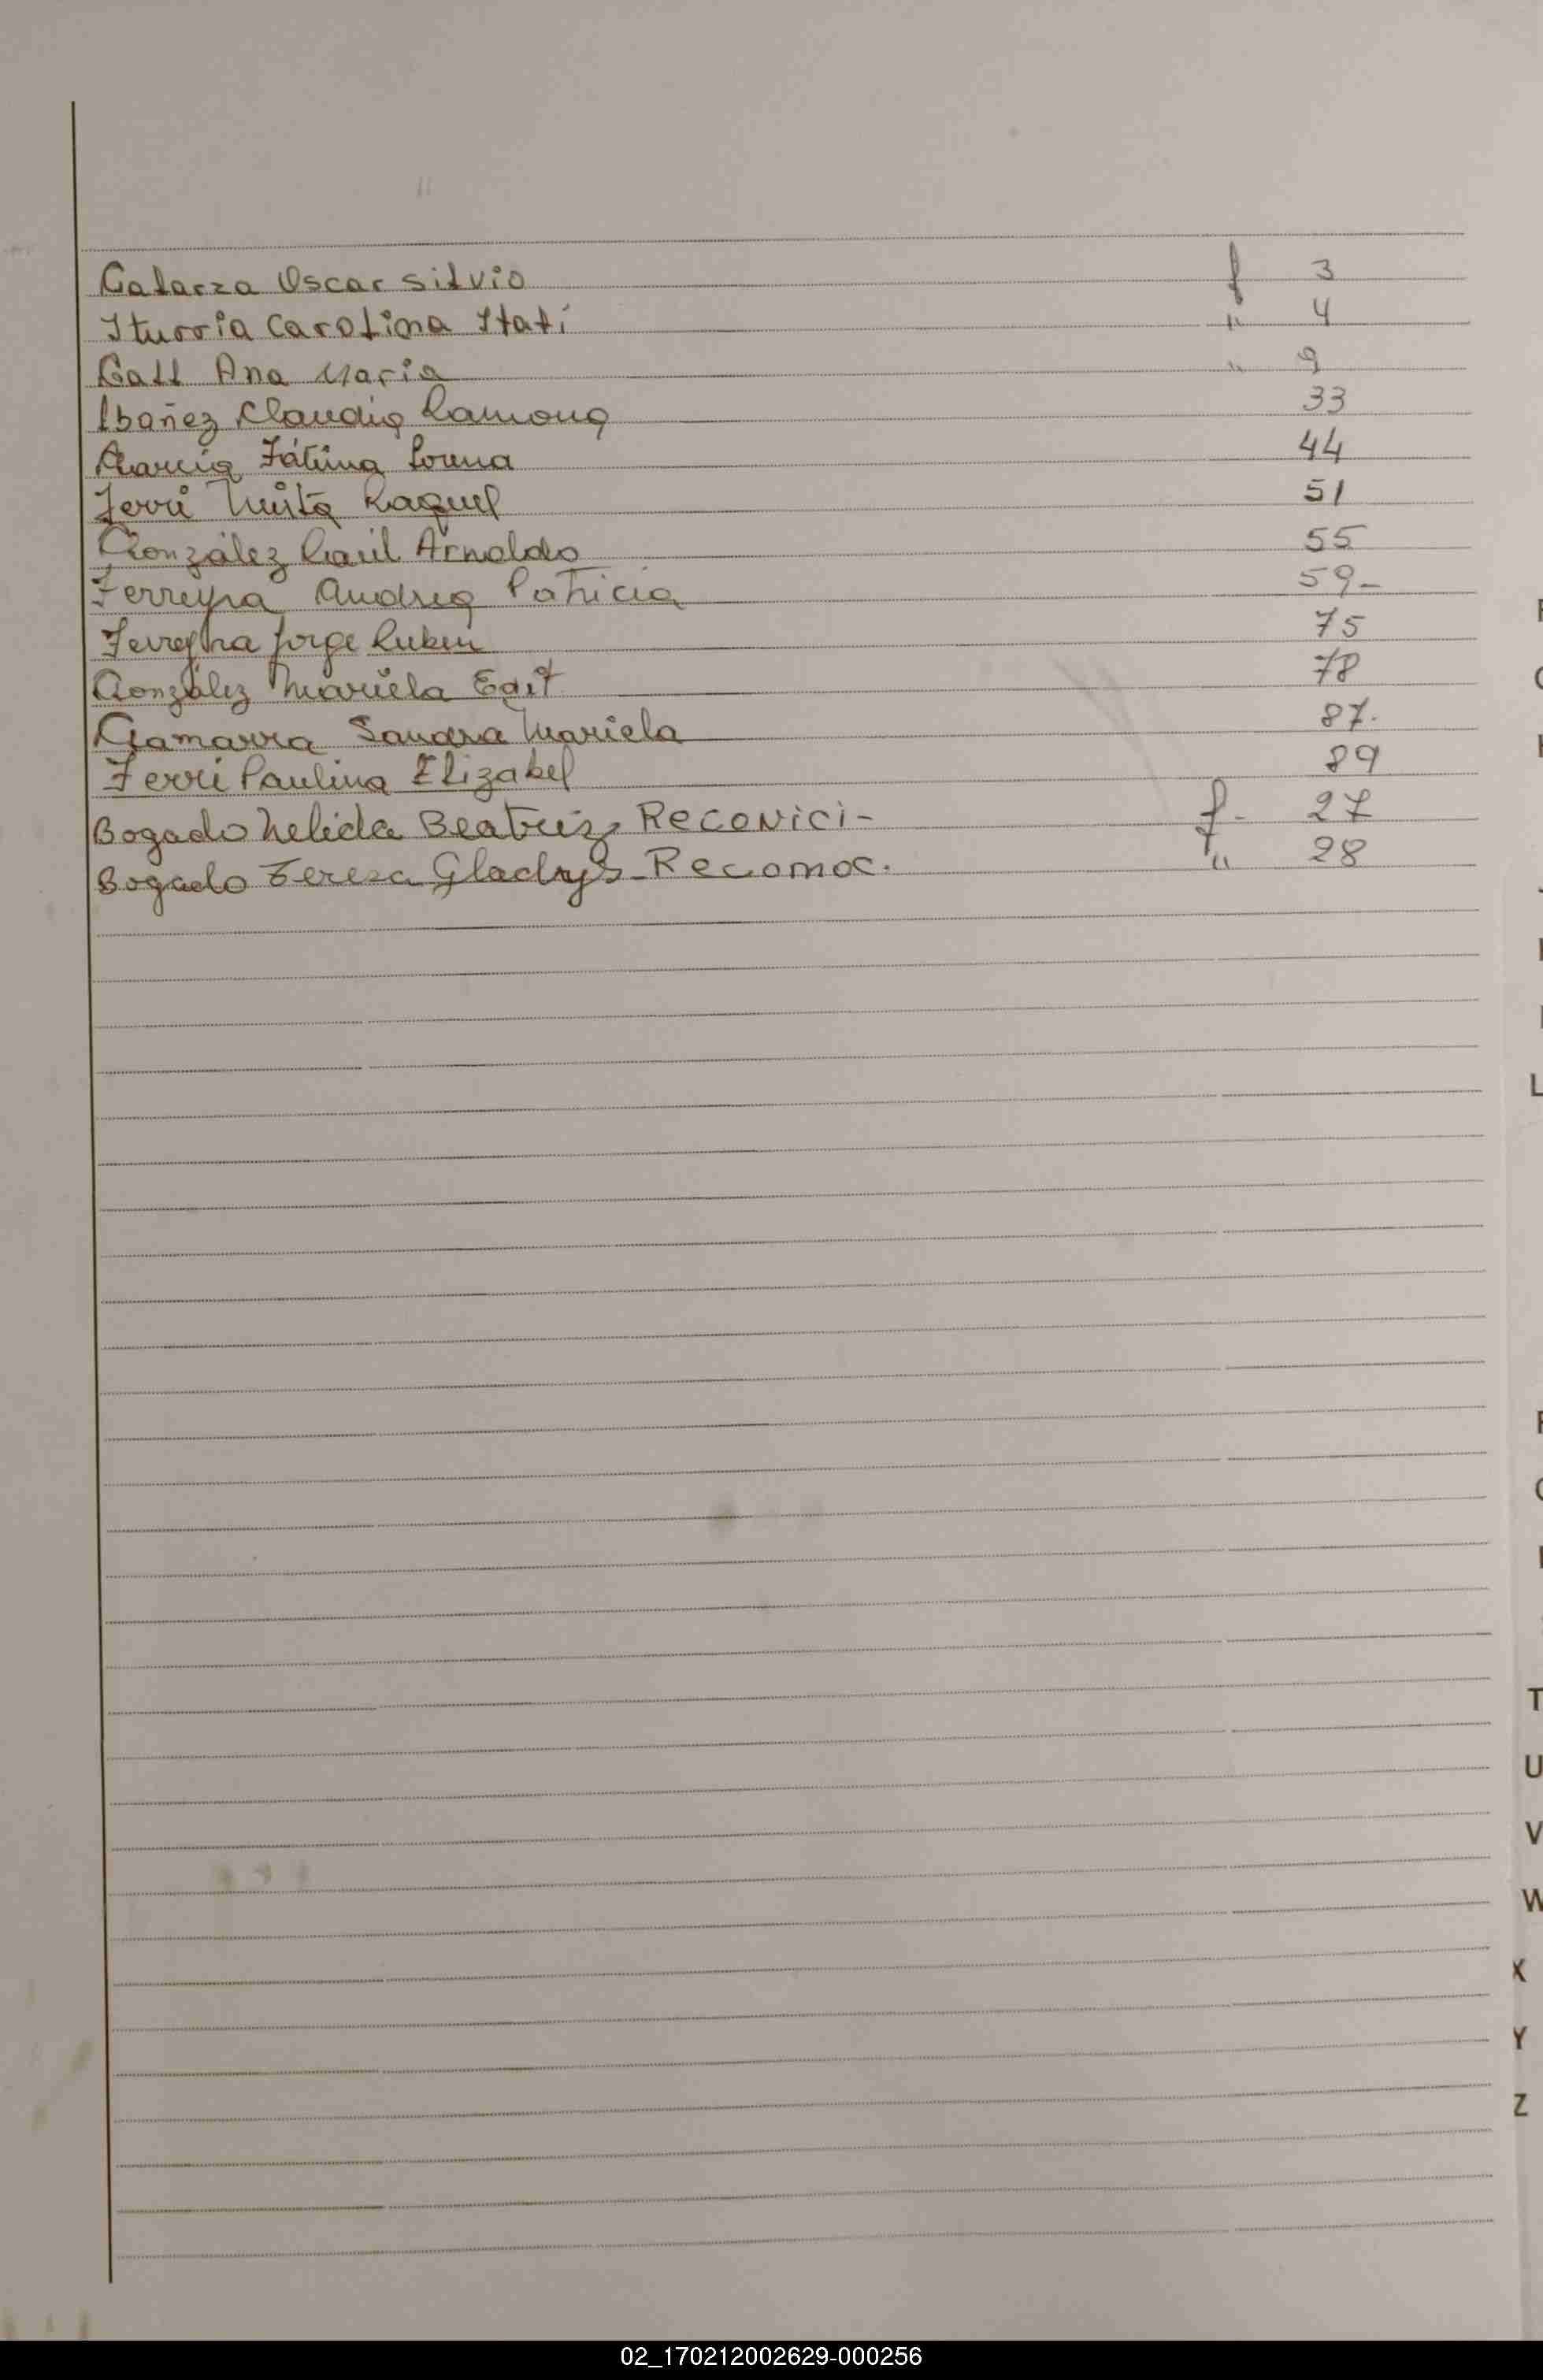 Galarza Oscar Silvio f 3
Iturria Carolina Itatí " 4
Gall Ana Maria " 9
Ibañez Claudia Ramona 33
García Fátima Lorena 44
Ferri Mirta Raquel 51
González Raúl Arnoldo 55
Ferreyra Andrea Patricia 59-
Ferreyra Jorge Ruben 75
González Mariela Edit 78
Gamarra Sandra Mariela 87.
Ferri Paulina Elizabel 89
Bogado Nelida Beatriz Reconici- f- 27
Bogado Teresa Gladys-Reconoc. " 28
L
T
U
V
W
X
Y
Z
02_170212002629-000256